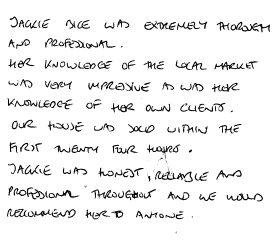 JACKIE DICE WAS EXTREMELY THOROUGH
AND PROFESSIONAL.
HER KNOWLEDGE OF THE LOCAL MARKET
WAS VERY IMPRESSIVE AS WAS HER
KNOWLEDGE OF HER OWN CLIENTS.
OUR HOUSE WAS SOLD WITHIN THE
FIRST TWENTY FOUR HOURS.
JACKIE WAS HONEST, RELIABLE AND
PROFESSIONAL THROUGHOUT AND WE WOULD
RECOMMEND HER TO ANYONE.